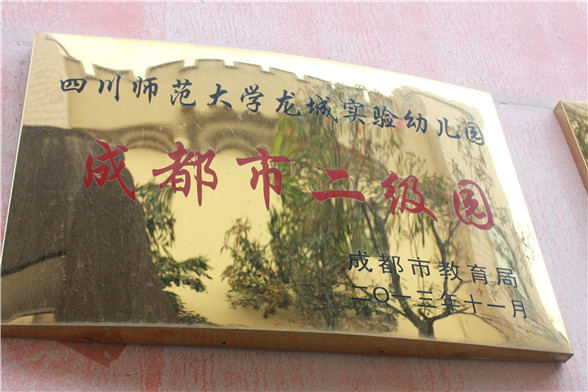 四川师范大学龙城实验幼儿园
成都市二级园
成都市教育局
二〇一三年十一月